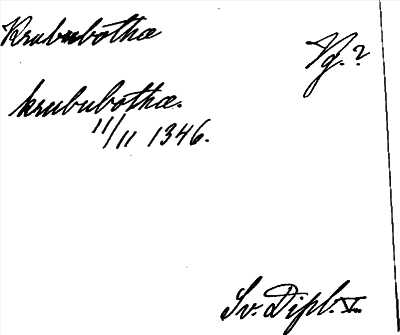 Krububothæ
Vg. ?
krububothæ.
11/11 1346.
Sv. Dipl. V.